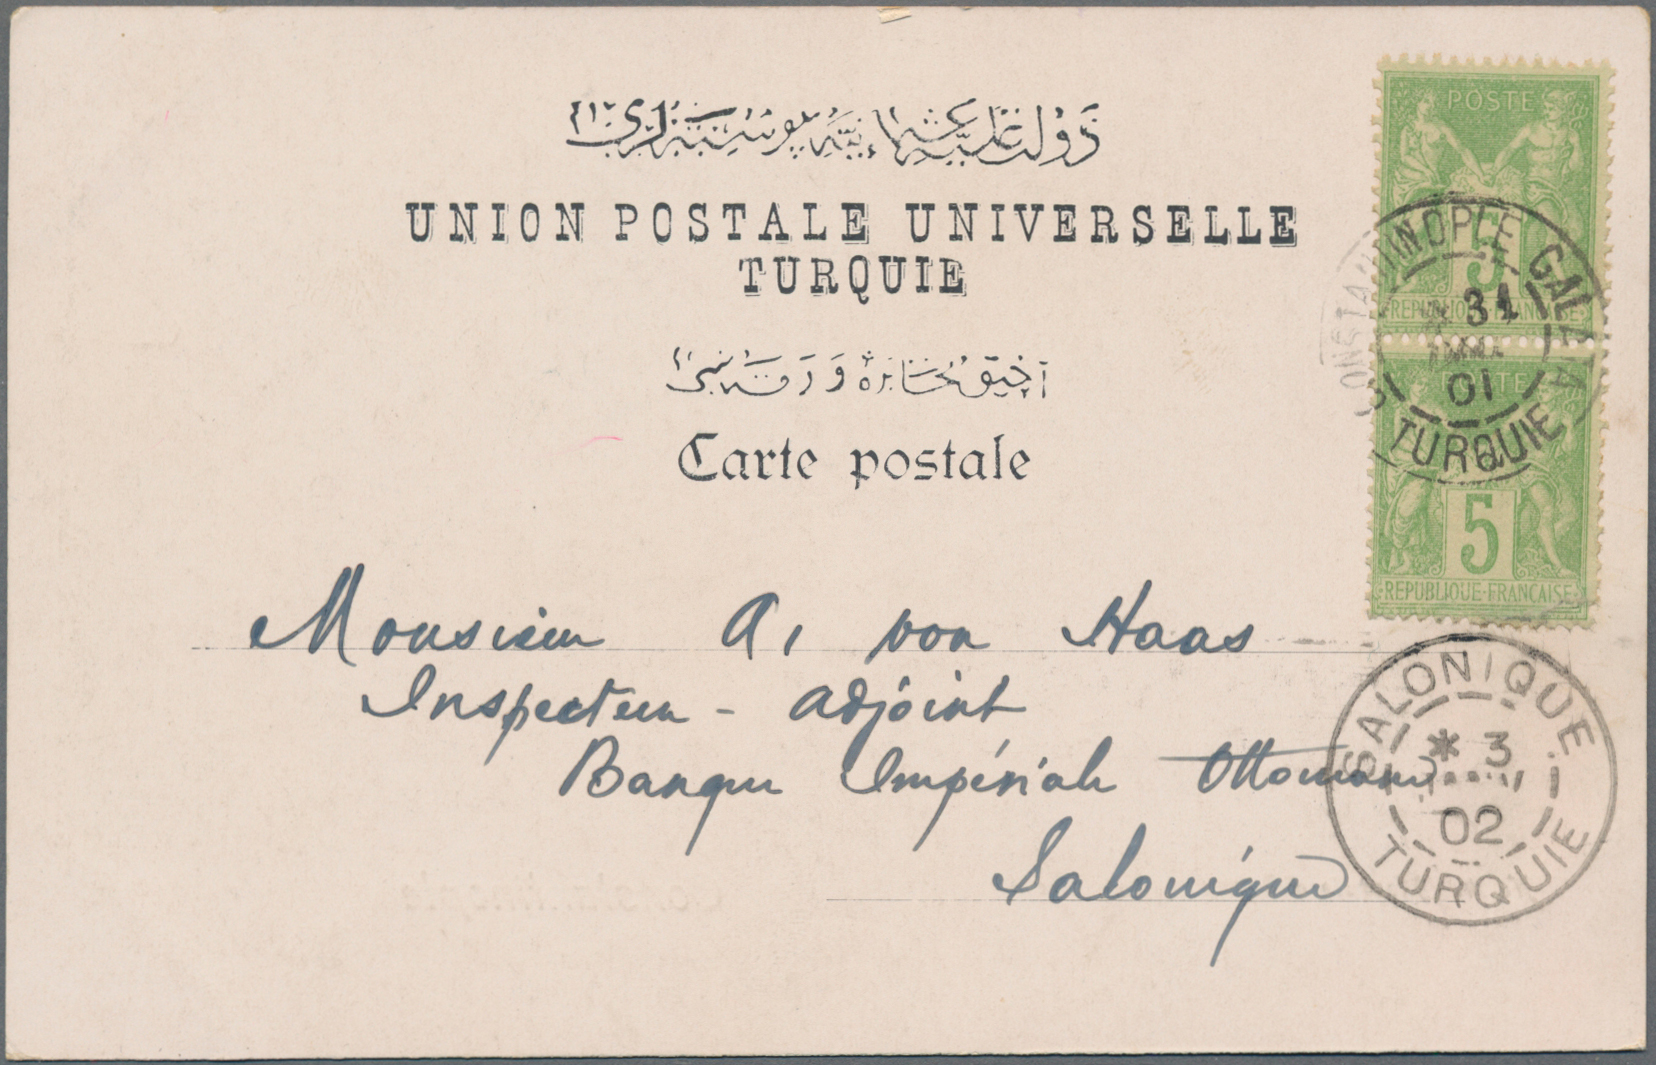 دولت علیهٔ عثمانیه پوسته‌لری
UNION POSTALE UNIVERSELLE
TURQUIE
Carte postale
POSTE
5
REPUBLIQUE FRANÇAISE
CONSTANTINOPLE GALATA
31
01
TURQUIE
POSTE
5
REPUBLIQUE FRANÇAISE
Monsieur A. von Haas
Inspecteur - adjoint
Banque Impériale Ottomane
Salonique
SALONIQUE
* 3
02
TURQUIE